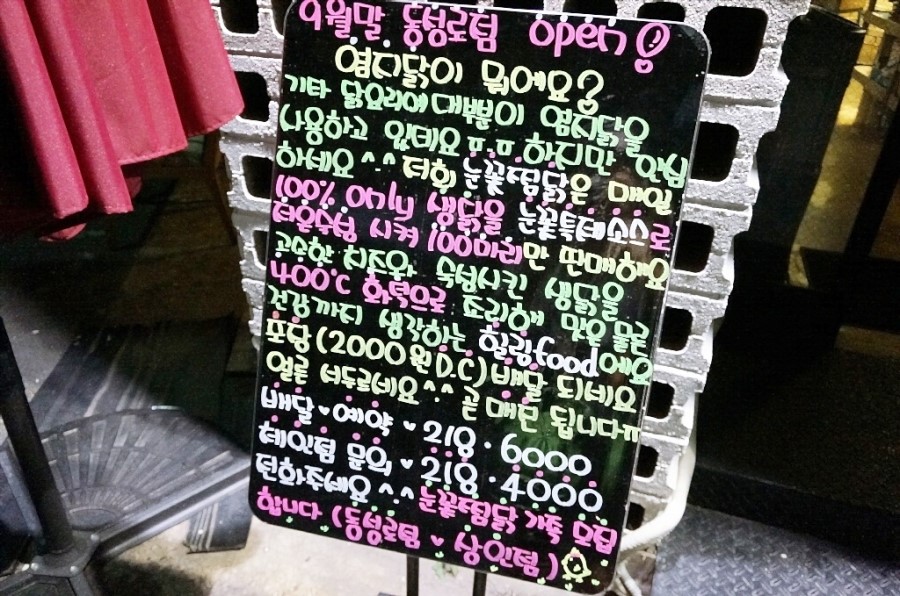 9월말 동성로텀 open!
염지닭이 뭐에요?
기타 닭요리에 대부분이 염지닭을
사용하고 있데요 ㅠ.ㅠ 하지만 안심
하세요^^ 저희 눈꽃치즈닭은 매일
100% only 생닭을 눈꽃특제소스로
저온숙성 시켜 100마리만 판매해요
고소한 치즈와 숙성시킨 생닭을
400℃ 화력으로 조리해 맛은 물론
건강까지 생각하는 힐링food에요
포담(2000원D.C) 배달 되네요
얼른 서두르세요^^ 곧 매진 됩니다ㅠ
배달♥예약 ♥ 218·6000
체인점 문의 ♥ 218·4000
전화주세요^^ 눈꽃치즈닭 가족 모집
합니다 (동성로점 ♥ 상인점)